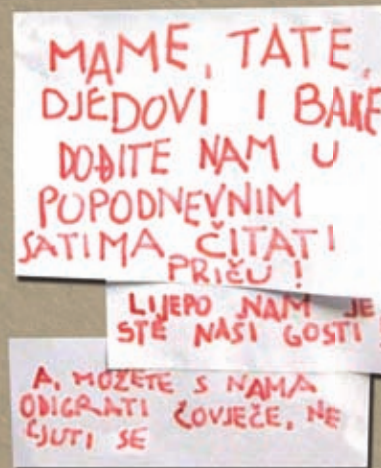 MAME, TATE,
DJEDOVI I BAKE
DOĐITE NAM U
POPODNEVNIM
SATIMA ČITATI
PRIČU!
LIJEPO NAM JE
STE NAŠI GOSTI
A, MOŽETE S NAMA
ODIGRATI ČOVJEČE, NE
LJUTI SE